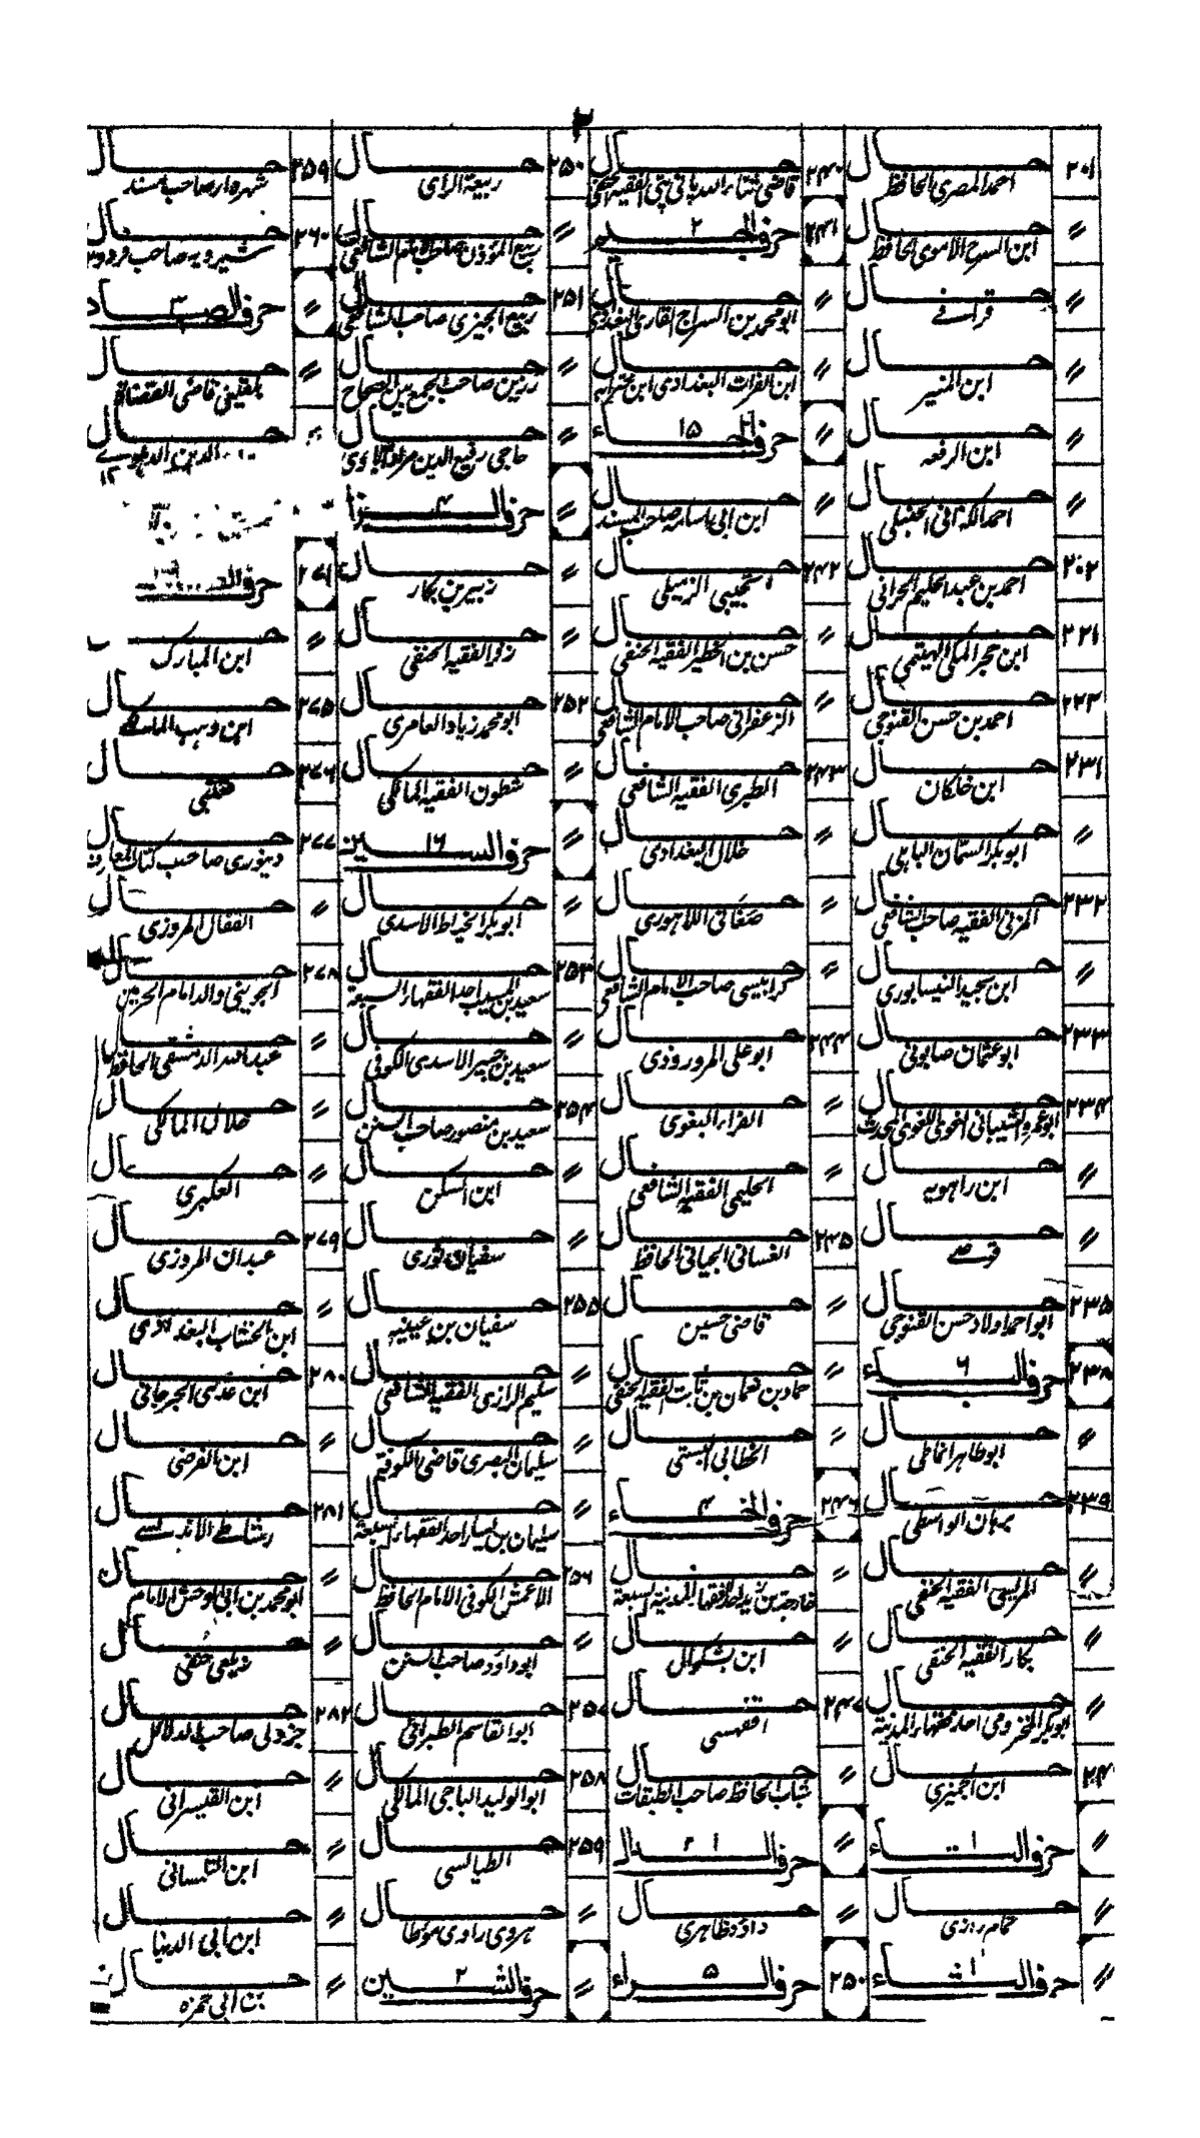 ۲
۲۰۱ حال احمد المصری الحافظ
〃 حال ابن السرح الاموی الحافظ
〃 حال قرافے
〃 حال ابن المنیر
〃 حال ابن الرفعہ
〃 حال الحنبلی
۲۰۲ حال احمد بن عبدالحلیم الحرانی
۲۲۱ حال ابن حجر المکی الہیتمی
۲۲۳ حال احمد بن حسن القنوجی
۲۳۱ حال ابن خلکان
〃 حال ابوبکر السمان الباہلی
۲۳۲ حال المزنی الفقیہ صاحب الشافعی
〃 حال ابن نجید النیسابوری
۲۳۳ حال ابو عثمان صابونی
۲۳۴ حال ابو عمرو الشیبانی النحوی اللغوی المحدث
〃 حال ابن راہویہ
〃 حال قوصے
۲۳۵ حال ابو احمد اولاد حسن القنوجی
۲۳۸ حرف البــاء ۶
〃 حال ابوطاہر انماطی
۲۳۹ حال برہان الواسطی
〃 حال المریسی الفقیہ الحنفی
〃 حال بکار الفقیہ الحنفی
〃 حال ابوبکر المخزومی احد فقہاء المدینۃ
۲۴۰ حال ابن الجمیزی
〃 حرف التــاء ۱
〃 حال تمام رازی
〃 حرف الثــاء ۱
۲۴۰ حال قاضی ثناء اللہ پانی پتی الفقیہ الحنفی
۲۴۱ حرف الجیم ۲
〃 حال ابو محمد بن السراج القاری البغدادی
〃 حال ابن الفرات البغدادی ابن حنزابہ
〃 حرف الحــاء ۱۵
〃 حال ابن ابی اسامہ صاحب المسند
۲۴۲ حال التجیبی الزمیلی
〃 حال حسن بن الخطیر الفقیہ الحنفی
〃 حال الزعفرانی صاحب الامام الشافعی
۲۴۳ حال الطبری الفقیہ الشافعی
〃 حال خلال البغدادی
〃 حال صغانی اللاہوری
〃 حال کرابیسی صاحب الامام الشافعی
۲۴۴ حال ابو علی المروروذی
〃 حال الفراء البغوی
〃 حال الحلیمی الفقیہ الشافعی
۲۴۵ حال الغسانی الجیانی الحافظ
〃 حال قاضی حسین
〃 حال حماد بن نعمان بن ثابت الفقیہ الحنفی
〃 حال الخطابی البستی
۲۴۶ حرف الخــاء ۴
〃 حال خارجۃ بن زید احد الفقہاء المدینۃ السبعۃ
〃 حال ابن بشکوال
۲۴۷ حال اقفہسی
〃 حال شباب الحافظ صاحب الطبقات
〃 حرف الــدال ۱
〃 حال داؤد ظاہری
۲۵۰ حرف الــراء ۵
۲۵۰ حال ربیعۃ الرای
〃 حال ربیع المؤذن صاحب الامام الشافعی
۲۵۱ حال ربیع الجیزی صاحب الشافعی
〃 حال رزین صاحب الجمع بین الصحاح
〃 حال حاجی رفیع الدین مرادآبادی
〃 حرف الــزا ۴
〃 حال زبیر بن بکار
〃 حال زفر الفقیہ الحنفی
۲۵۲ حال ابو محمد زیاد العامری
〃 حال شطون الفقیہ المالکی
〃 حرف الســین ۱۶
〃 حال ابوبکر الخیاط الاسدی
۲۵۳ حال سعید بن المسیب احد الفقہاء السبعۃ
〃 حال سعید بن جبیر الاسدی الکوفی
۲۵۴ حال سعید بن منصور صاحب السنن
〃 حال ابن السکن
〃 حال سفیان ثوری
۲۵۵ حال سفیان بن عیینہ
〃 حال سلیم الرازی الفقیہ الشافعی
〃 حال سلیمان البصری قاضی الکوفۃ
〃 حال سلیمان بن یسار احد الفقہاء السبعۃ
۲۵۶ حال الاعمش الکوفی الامام الحافظ
〃 حال ابوداؤد صاحب السنن
۲۵۷ حال ابو القاسم الطبرانی
۲۵۸ حال ابو الولید الباجی المالکی
۲۵۹ حال الطیالسی
〃 حال ہروی راوی مؤطا
〃 حرف الشــین ۲
۲۵۹ حال شہردار صاحب مسند
۲۶۰ حال شیرویہ صاحب فردوس
〃 حرف الصــاد ۳
〃 حال بلقینی قاضی القضاۃ
〃 حال الدین الدہلوے ۱۲
۲۷۱ حرف
〃 حال ابن المبارک
۲۷۵ حال ابن وہب المالکے
۲۷۶ حال قعنبی
۲۷۷ حال دینوری صاحب کتاب المعارف
〃 حال القفال المروزی
۲۷۸ حال الجوینی والد امام الحرمین
〃 حال عبداللہ الدمشقی الحافظ
〃 حال خلال المالکی
〃 حال العکبری
۲۷۹ حال عبدان المروزی
〃 حال ابن الخشاب البغدادی
۲۸۰ حال ابن عدی الجرجانی
〃 حال ابن الفرضی
۲۸۱ حال رشاطے الاندلسے
〃 حال ابو محمد بن ابی الوحش الامام
〃 حال زیلعی حنفی
۲۸۲ حال جزولی صاحب الدلائل
〃 حال ابن القیسرانی
〃 حال ابن التلمسانی
〃 حال ابن ابی الدنیا
〃 حال بن ابی حمزہ